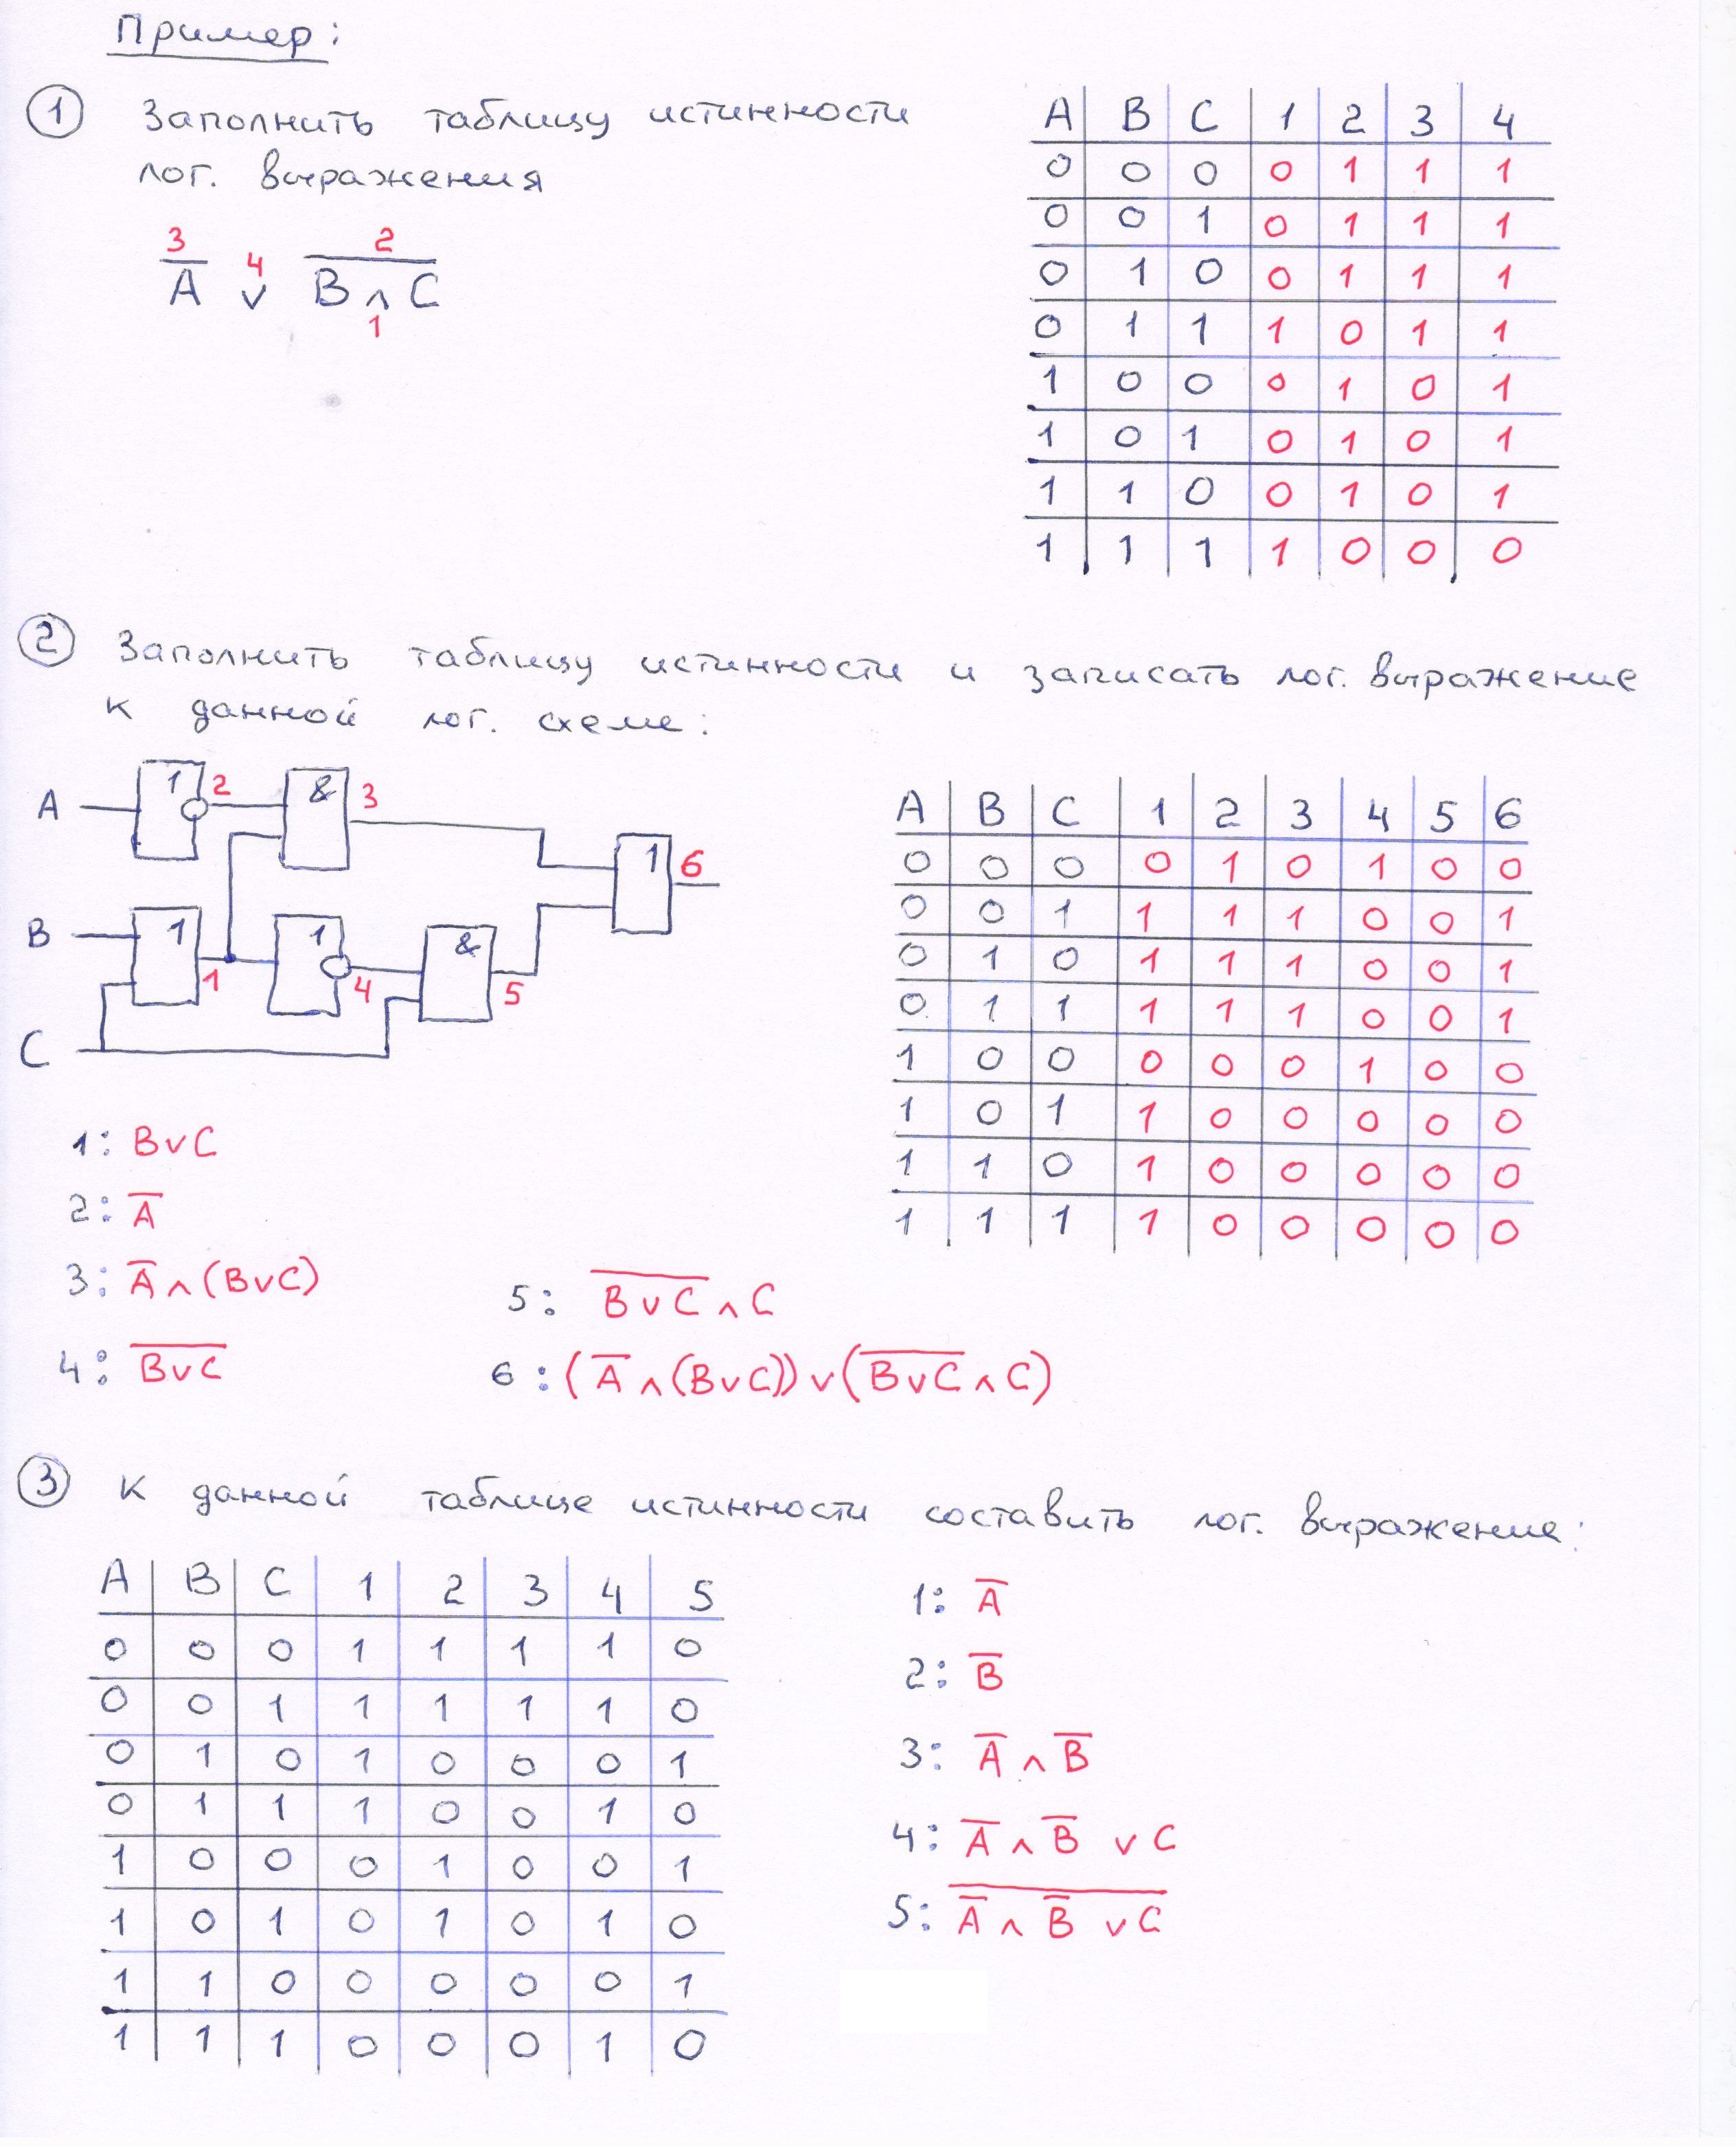 Пример:
① Заполнить таблицу истинности
лог. выражения
3 4 2
A̅ ∨ B̅ ̅∧̅ ̅C̅
1
A B C 1 2 3 4
0 0 0 0 1 1 1
0 0 1 0 1 1 1
0 1 0 0 1 1 1
0 1 1 1 0 1 1
1 0 0 0 1 0 1
1 0 1 0 1 0 1
1 1 0 0 1 0 1
1 1 1 1 0 0 0
② Заполнить таблицу истинности и записать лог. выражение
к данной лог. схеме:
A 1 2 & 3
1 6
B 1 1 1 4 & 5
C
A B C 1 2 3 4 5 6
0 0 0 0 1 0 1 0 0
0 0 1 1 1 1 0 0 1
0 1 0 1 1 1 0 0 1
0 1 1 1 1 1 0 0 1
1 0 0 0 0 0 1 0 0
1 0 1 1 0 0 0 0 0
1 1 0 1 0 0 0 0 0
1 1 1 1 0 0 0 0 0
1: B∨C
2: A̅
3: A̅ ∧ (B∨C)
4: B̅∨̅C̅
5: B̅∨̅C̅ ∧ C
6: (A̅ ∧ (B∨C)) ∨ (B̅∨̅C̅ ∧ C)
③ К данной таблице истинности составить лог. выражение:
A B C 1 2 3 4 5
0 0 0 1 1 1 1 0
0 0 1 1 1 1 1 0
0 1 0 1 0 0 0 1
0 1 1 1 0 0 1 0
1 0 0 0 1 0 0 1
1 0 1 0 1 0 1 0
1 1 0 0 0 0 0 1
1 1 1 0 0 0 1 0
1: A̅
2: B̅
3: A̅ ∧ B̅
4: A̅ ∧ B̅ ∨ C
5: A̿ ̅∧̅ ̅B̿ ̅∨̅ ̅C̅